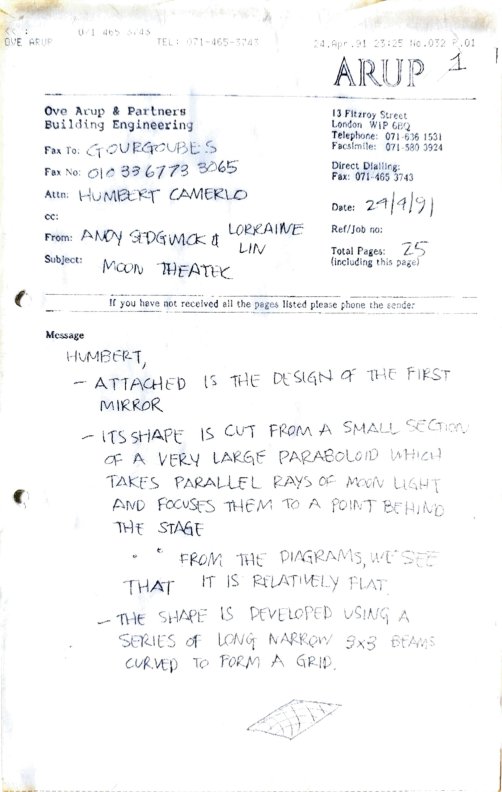 071 465 3743
OVE ARUP TEL: 071-465-3743 24.Apr.91 23:25 No.032 P.01
ARUP 1
Ove Arup & Partners
Building Engineering
13 Fitzroy Street
London W1P 6BQ
Telephone: 071-636 1531
Facsimile: 071-580 3924
Fax To: GOURGOUBES
Fax No: 010 33 6773 3065
Direct Dialling:
Fax: 071-465 3743
Attn: HUMBERT CAMERLO
Date: 24/4/91
cc:
Ref/Job no:
From: ANDY SEDGWICK & LORRAINE
LIN
Total Pages: 25
(including this page)
Subject: MOON THEATER
If you have not received all the pages listed please phone the sender
Message
HUMBERT,
- ATTACHED IS THE DESIGN OF THE FIRST
MIRROR
- ITS SHAPE IS CUT FROM A SMALL SECTION
OF A VERY LARGE PARABOLOID WHICH
TAKES PARALLEL RAYS OF MOON LIGHT
AND FOCUSES THEM TO A POINT BEHIND
THE STAGE
" FROM THE DIAGRAMS, WE SEE
THAT IT IS RELATIVELY FLAT.
- THE SHAPE IS DEVELOPED USING A
SERIES OF LONG NARROW 3x3 BEAMS
CURVED TO FORM A GRID.